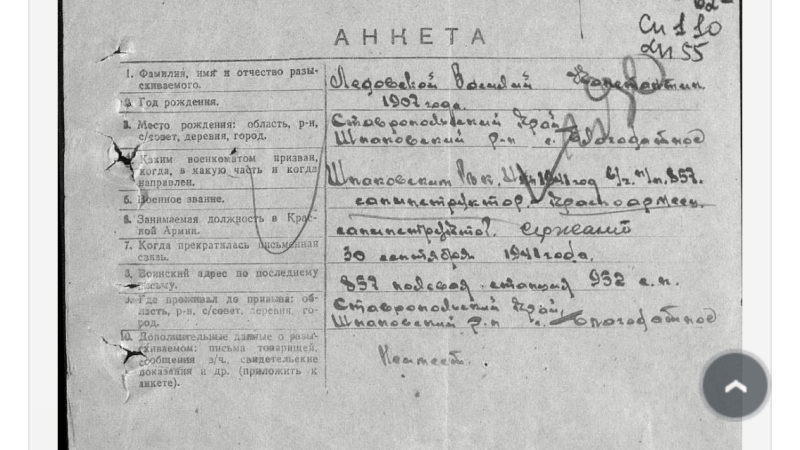 Сп 110
дп 55
АНКЕТА
1. Фамилия, имя и отчество разы-
скиваемого.
Ледовской Василий Константин.
2. Год рождения.
1907 года.
3. Место рождения: область, р-н,
с/совет, деревня, город.
Ставропольский Край
Шпаковский р-н с. Благодатное
4. Каким военкоматом призван,
когда, в какую часть и когда
направлен.
Шпаковским Рвк. 1941 год в/ч. п/п. 857.
5. Военное звание.
санинструктор. Красноармеец.
6. Занимаемая должность в Крас-
ной Армии.
санинструктор. сержант
7. Когда прекратилась письменная
связь.
30 сентября 1941 года.
8. Воинский адрес по последнему
письму.
857 полевая станция 932 с.п.
9. Где проживал до призыва: об-
ласть, р-н, с/совет, деревня, го-
род.
Ставропольский Край,
Шпаковский р-н с. Благодатное
10. Дополнительные данные о разы-
скиваемом: письма товарищей,
сообщения з/ч, свидетельские
показания и др. (приложить к
анкете).